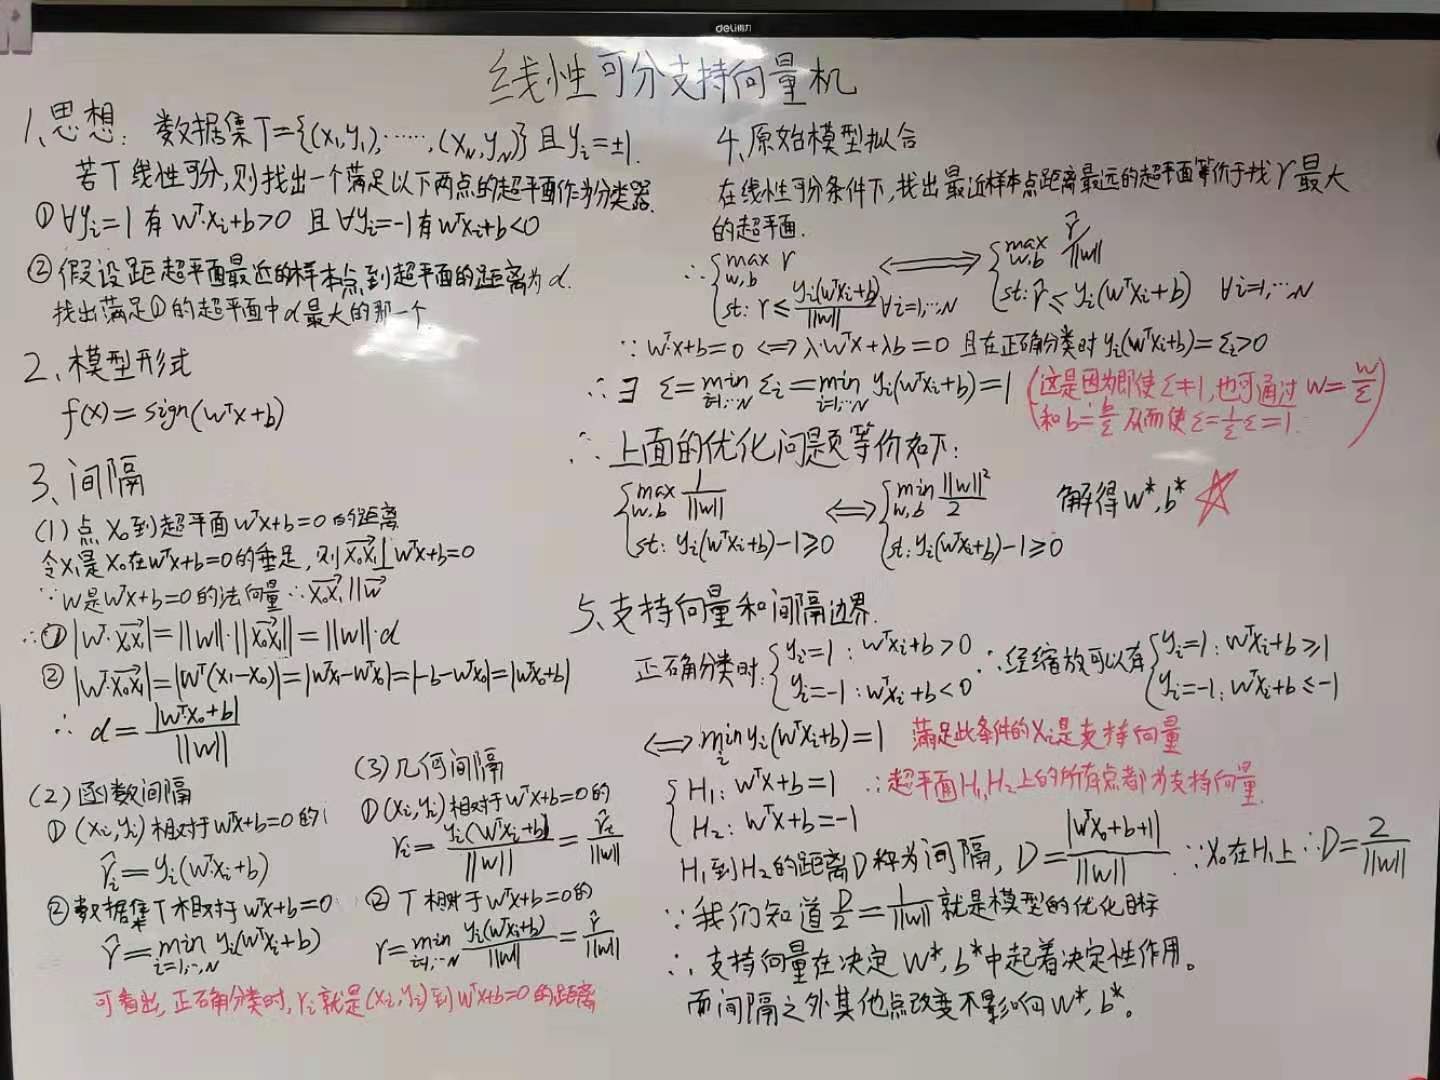 deli得力
线性可分支持向量机
1、思想: 数据集T={(x₁,y₁),……,(x_N,y_N)}且y_i=±1.
若T线性可分,则找出一个满足以下两点的超平面作为分类器.
① ∀y_i=1有wᵀ·x_i+b>0 且∀y_i=-1有wᵀx_i+b<0
② 假设距超平面最近的样本点到超平面的距离为d.
找出满足①的超平面中d最大的那一个.
2、模型形式
f(x)=sign(wᵀx+b)
3、间隔
(1)点x₀到超平面wᵀx+b=0的距离
令x₁是x₀在wᵀx+b=0的垂足,则x₀x₁⊥wᵀx+b=0
∵w是wᵀx+b=0的法向量∴x₀x₁∥w
∴①|w·x₀x₁|=||w||·||x₀x₁||=||w||·d
②|w·x₀x₁|=|wᵀ(x₁-x₀)|=|wᵀx₁-wᵀx₀|=|-b-wᵀx₀|=|wᵀx₀+b|
∴ d=|wᵀx₀+b|/||w||
(2)函数间隔
①(x_i,y_i)相对于wᵀx+b=0的
r̂_i=y_i(wᵀ·x_i+b)
②数据集T相对于wᵀx+b=0
r̂=min_{i=1,…,N} y_i(wᵀx_i+b)
(3)几何间隔
①(x_i,y_i)相对于wᵀx+b=0的
r_i=y_i(wᵀx_i+b)/||w||=r̂_i/||w||
②T相对于wᵀx+b=0的
r=min_{i=1,…,N} y_i(wᵀx_i+b)/||w||=r̂/||w||
可看出,正确分类时,r_i就是(x_i,y_i)到wᵀx+b=0的距离
4、原始模型拟合
在线性可分条件下,找出最近样本点距离最远的超平面等价于找r最大
的超平面.
∴{max_{w,b} r ⟺ {max_{w,b} r̂/||w||
st: r≤y_i(wᵀx_i+b)/||w|| ∀i=1,…,N st: r̂≤y_i(wᵀx_i+b) ∀i=1,…,N
∵ wᵀ·x+b=0 ⟺ λ·wᵀx+λb=0 且在正确分类时y_i(wᵀx_i+b)=ε_i>0
∴∃ ε=min_{i=1,…,N} ε_i=min_{i=1,…,N} y_i(wᵀx_i+b)=1 (这是因为即使ε≠1,也可通过w=w/ε
和b=b/ε从而使ε=1/ε·ε=1.)
∴上面的优化问题等价如下:
{max_{w,b} 1/||w|| ⟺ {min_{w,b} ||w||²/2 解得w*,b*☆
st: y_i(wᵀx_i+b)-1≥0 st: y_i(wᵀx_i+b)-1≥0
5、支持向量和间隔边界.
正确分类时:{y_i=1:wᵀx_i+b>0 ∴经缩放可以有{y_i=1:wᵀx_i+b≥1
y_i=-1:wᵀx_i+b<0 y_i=-1:wᵀx_i+b≤-1
⟺ min_i y_i(wᵀx_i+b)=1 满足此条件的x_i是支持向量
{H₁:wᵀx+b=1 ∴超平面H₁,H₂上的所有点都为支持向量.
H₂:wᵀx+b=-1
H₁到H₂的距离D称为间隔, D=|wᵀx₀+b+1|/||w|| ∵x₀在H₁上∴D=2/||w||
∵我们知道D/2=1/||w||就是模型的优化目标
∴支持向量在决定w*,b*中起着决定性作用。
而间隔之外其他点改变不影响w*,b*。